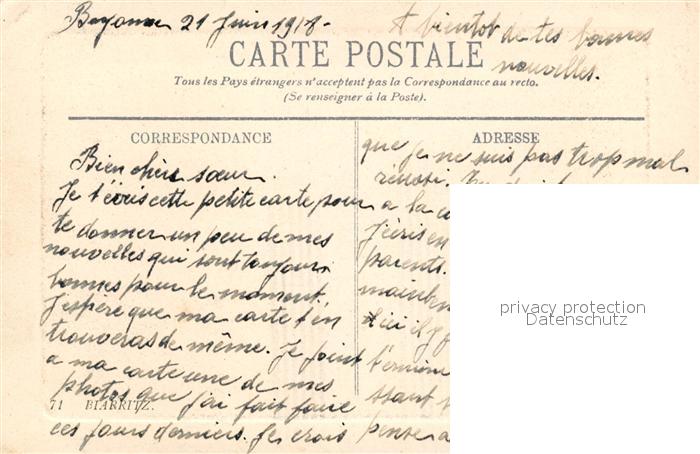 Bayonne 21 Juin 1918-
A bientot de tes bonnes
nouvelles.
CARTE POSTALE
Tous les Pays étrangers n'acceptent pas la Correspondance au recto.
(Se renseigner à la Poste).
CORRESPONDANCE
Bien chère sœur.
Je t'écris cette petite carte pour
te donner un peu de mes
nouvelles qui sont toujours
bonnes pour le moment.
J'espère que ma carte t'en
trouveras de même. Je joint
a ma carte une de mes
photos que j'ai fait faire
ces jours derniers. Je crois
71 BIARRITZ.
ADRESSE
que je ne suis pas trop mal
réussi.
a la
J'écris en
parents.
d'ici il y
t'emmène
pense a
privacy protection
Datenschutz